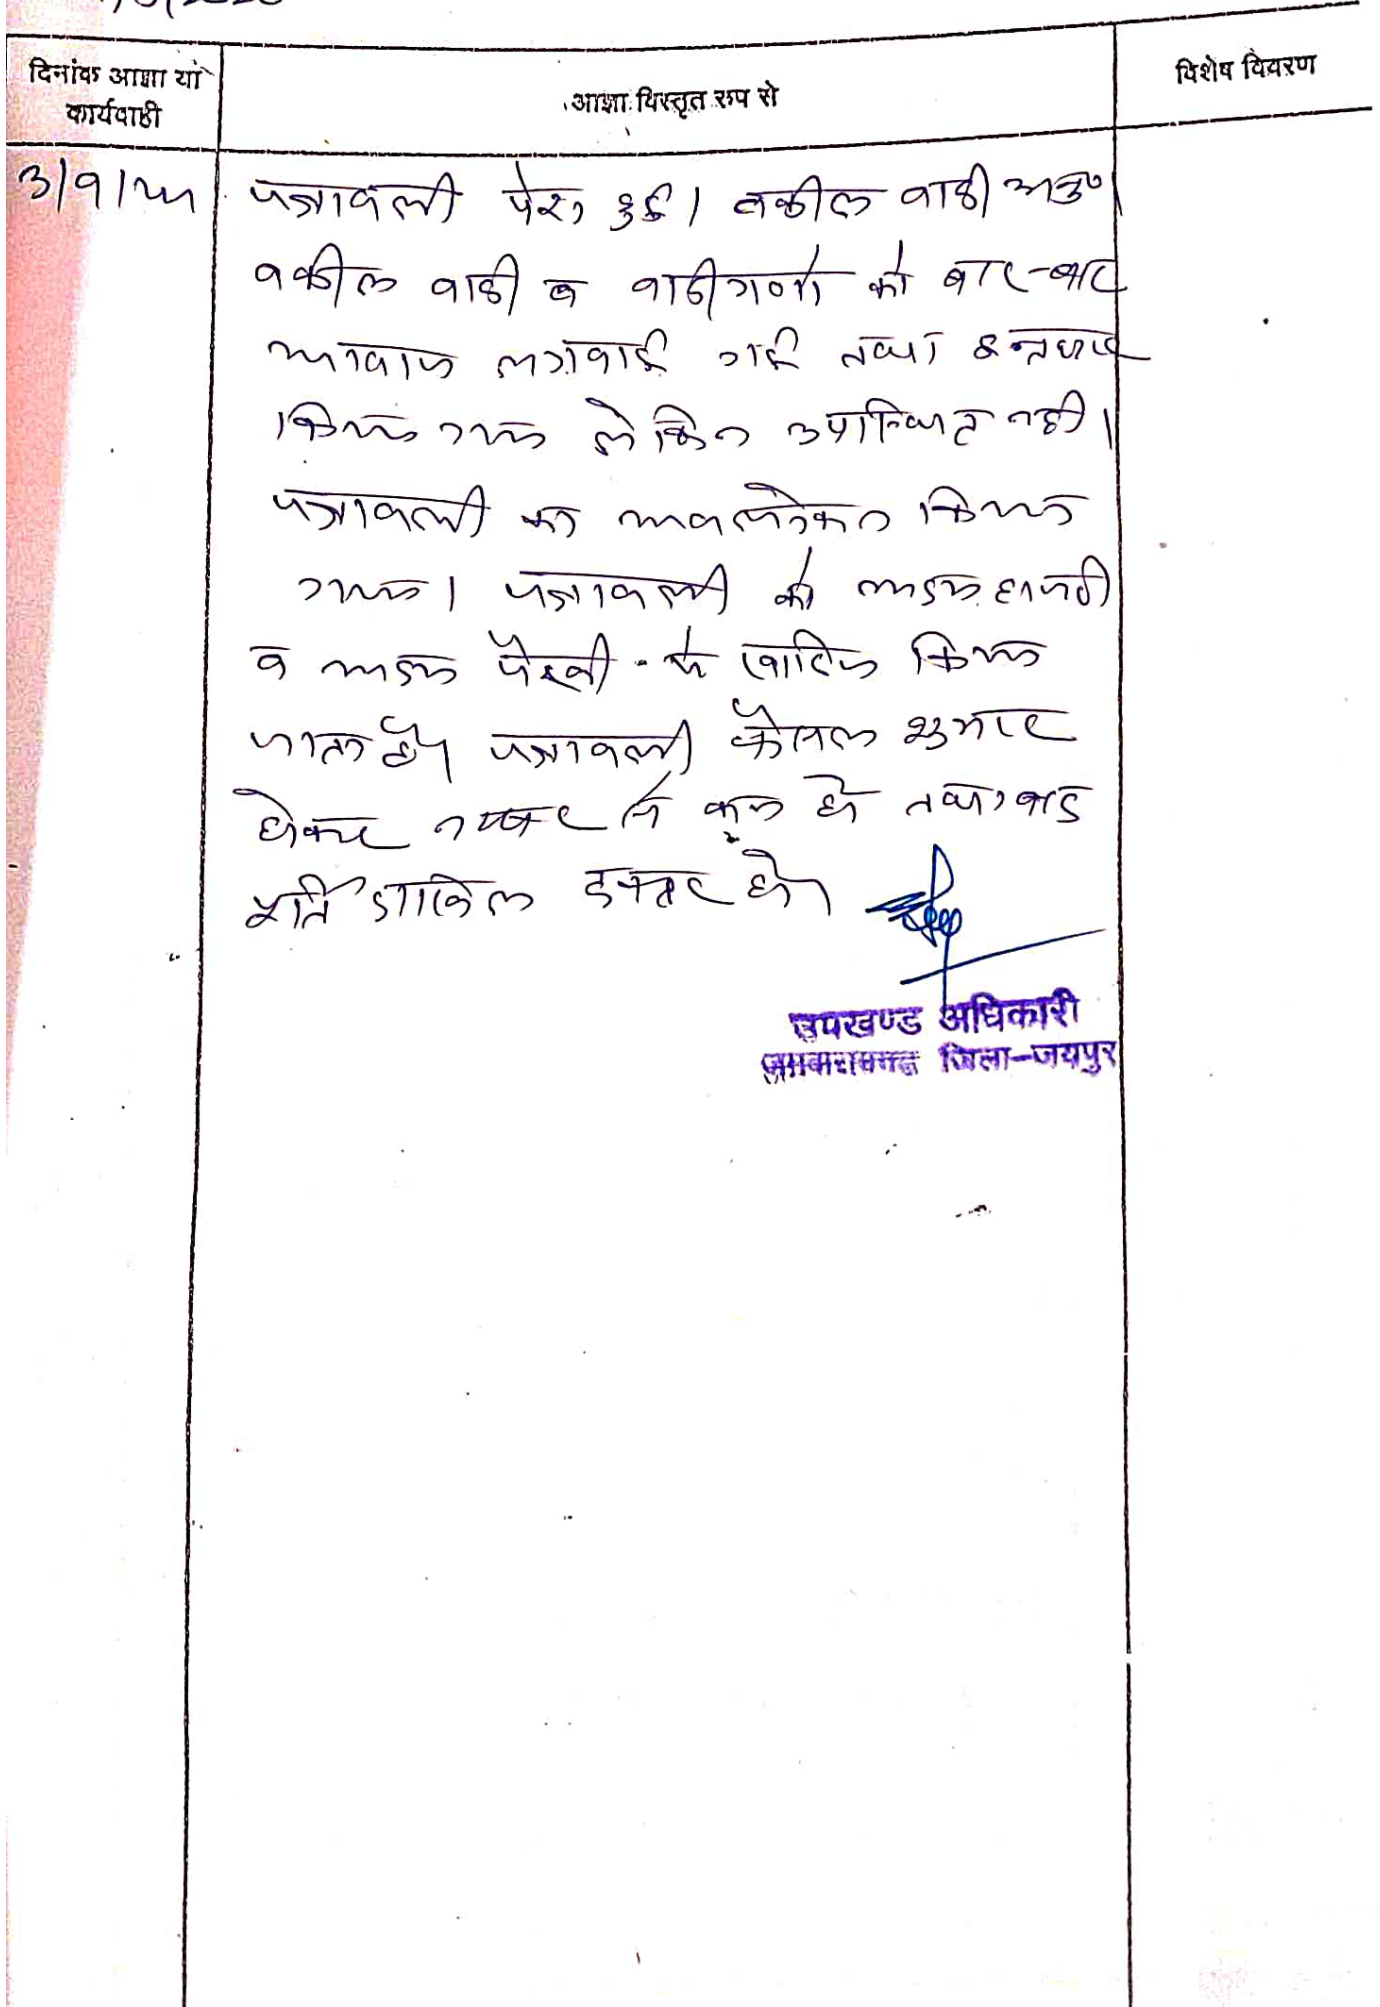 दिनांक आज्ञा या
कार्यवाही
आज्ञा विस्तृत रूप से
विशेष विवरण
पत्रावली पेश हुई। वकील वादी अनु०
वकील वादी व वादीगणों को बार-बार
आवाज लगवाई गई तथा इन्तजार
किया गया लेकिन उपस्थित नहीं।
पत्रावली का अवलोकन किया
गया। पत्रावली को अदम हाजरी
व अदम पैरवी में खारिज किया
जाता है। पत्रावली फैसल शुमार
होकर नम्बर से कम हो तथा बाद
पूर्ति दाखिल दफ्तर हो।
उपखण्ड अधिकारी
जिला-जयपुर